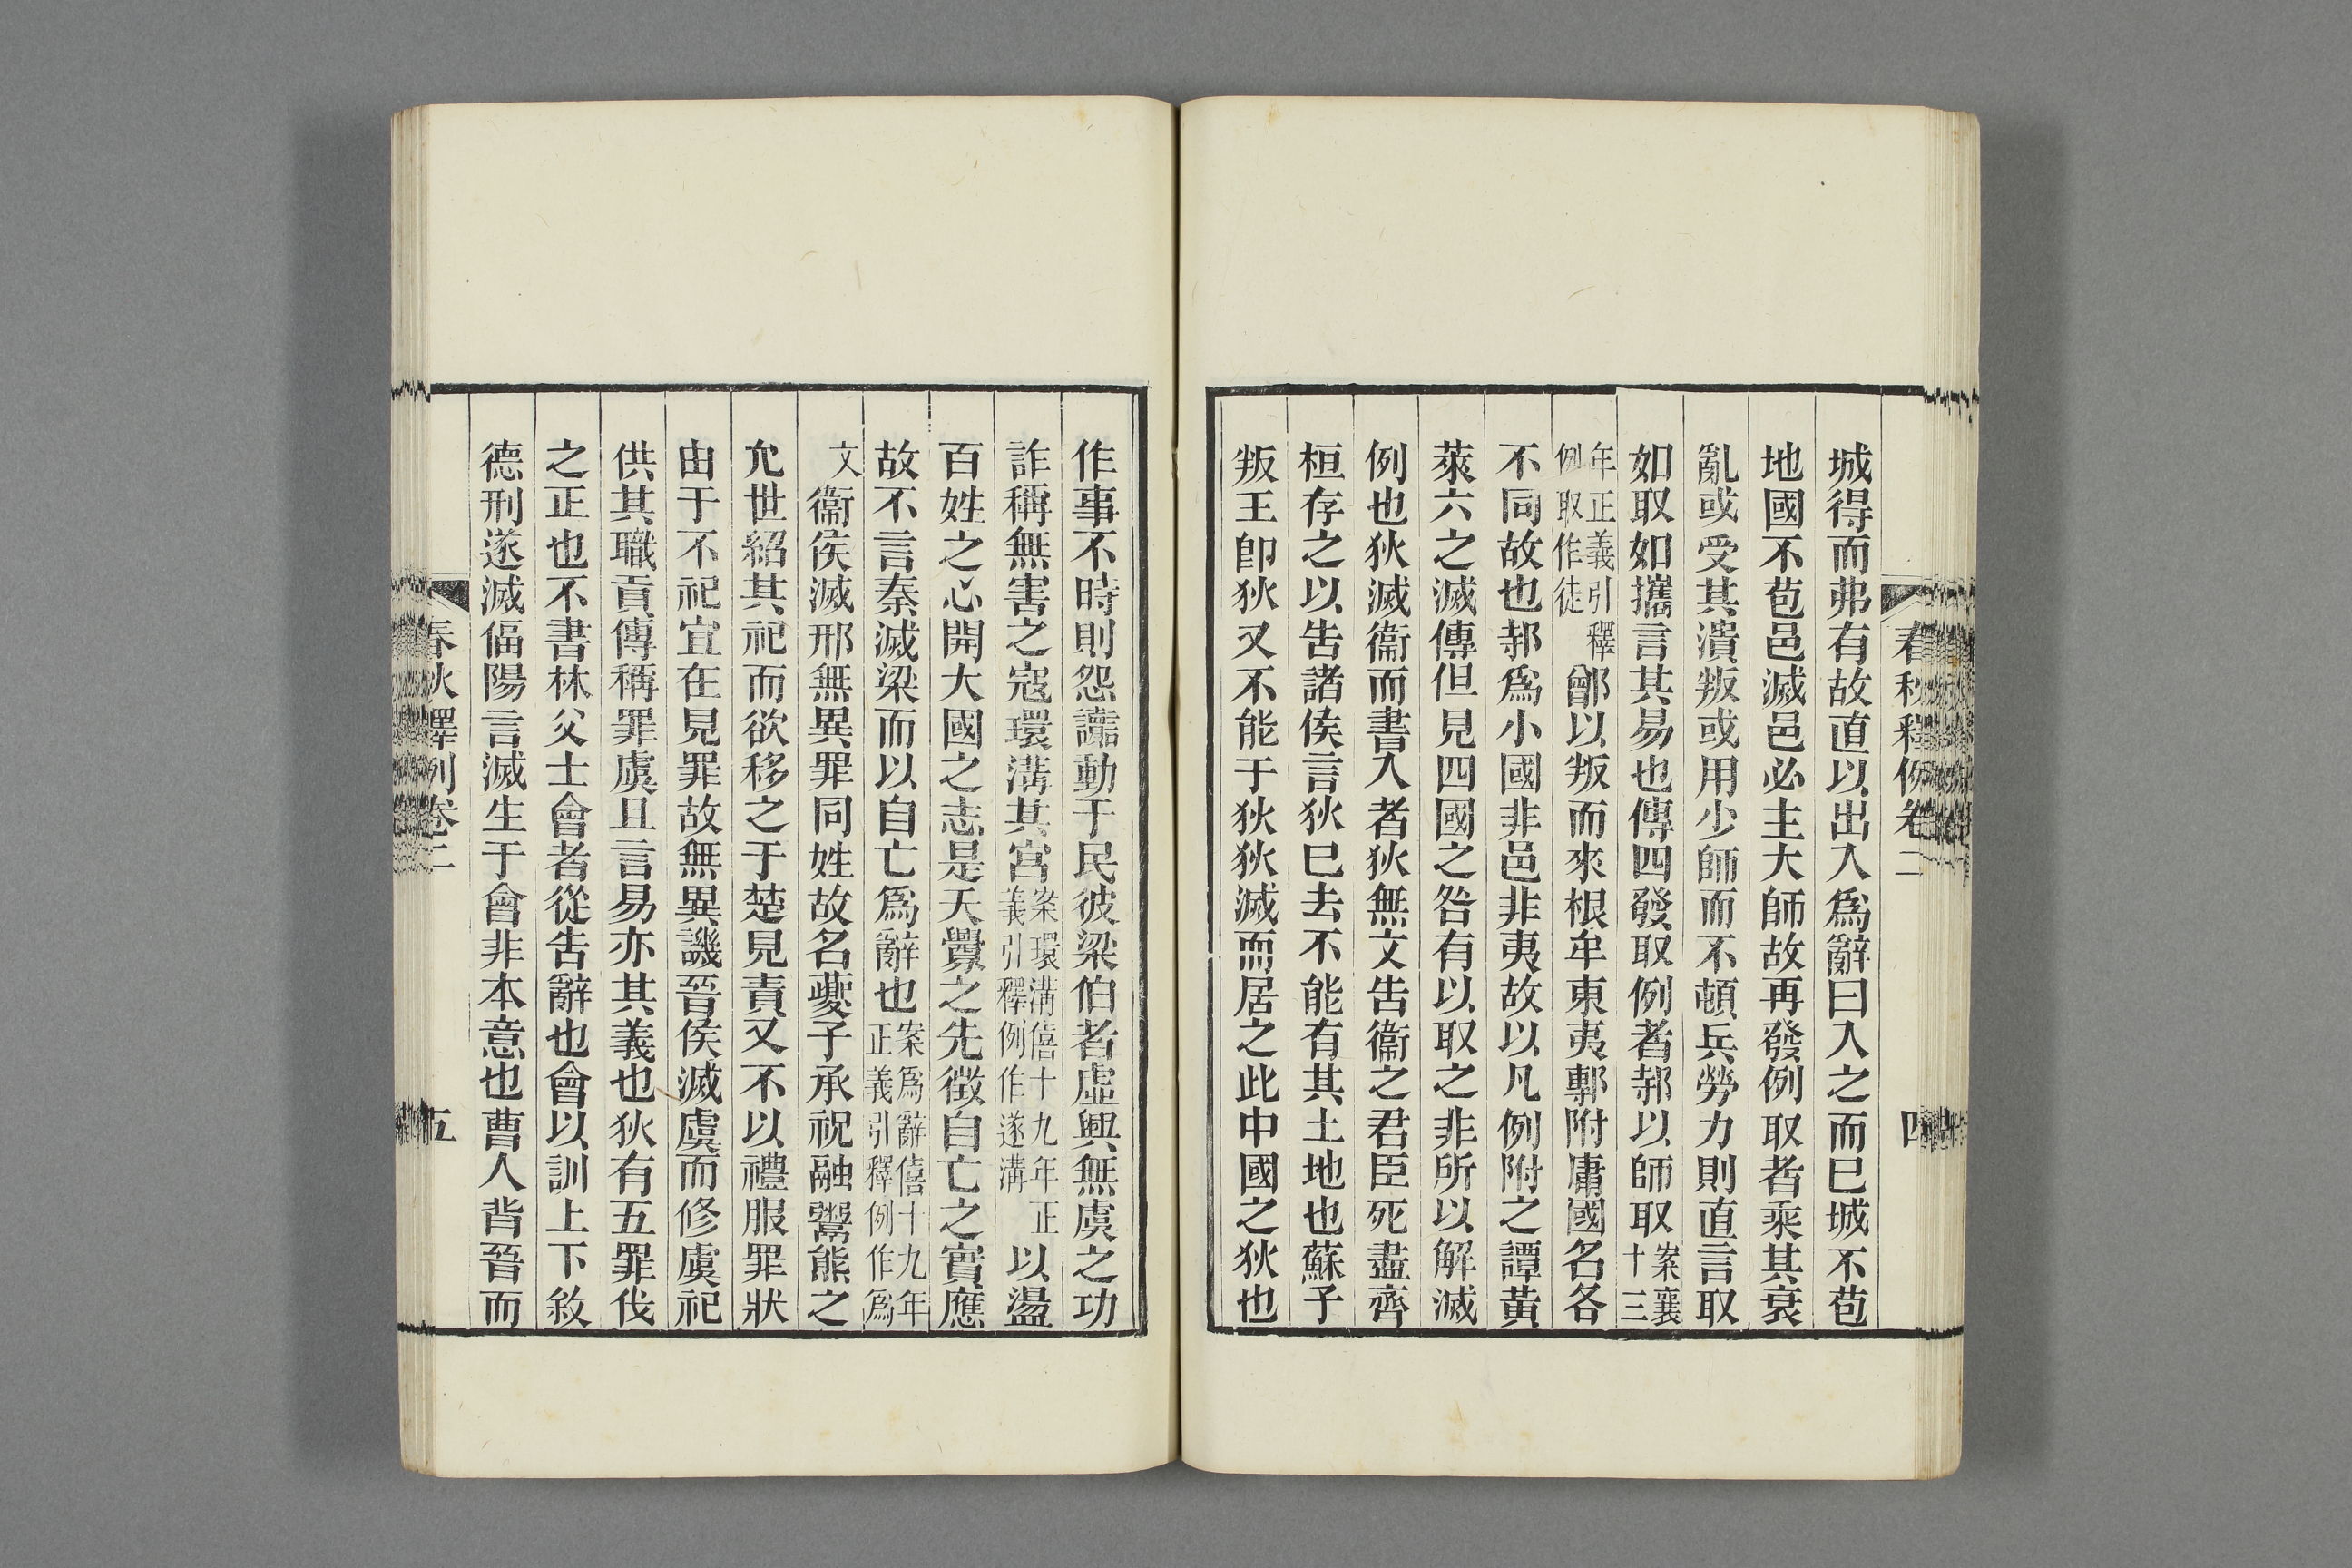 春秋釋例卷二 四
城得而弗有故直以出入爲辭曰入之而已城不苞
地國不苞邑滅邑必主大師故再發例取者乘其衰
亂或受其潰叛或用少師而不頓兵勞力則直言取
如取如攜言其易也傳四發取例者邿以師取案襄十三
年正義引釋例取作徒鄫以叛而來根牟東夷鄟附庸國名各
不同故也邿爲小國非邑非夷故以凡例附之譚黃
萊六之滅傳但見四國之咎有以取之非所以解滅
例也狄滅衞而書入者狄無文告衞之君臣死盡齊
桓存之以告諸侯言狄已去不能有其土地也蘇子
叛王卽狄又不能于狄狄滅而居之此中國之狄也
作事不時則怨讟動于民彼梁伯者虛興無虞之功
詐稱無害之寇環溝其宮案環溝僖十九年正義引釋例作遂溝以盪
百姓之心開大國之志是天釁之先徵自亡之實應
故不言秦滅梁而以自亡爲辭也案爲辭僖十九年正義引釋例作爲
文衞侯滅邢無異罪同姓故名夔子承祝融鬻熊之
允世紹其祀而欲移之于楚見責又不以禮服罪狀
由于不祀宜在見罪故無異譏晉侯滅虞而修虞祀
供其職貢傳稱罪虞且言易亦其義也狄有五罪伐
之正也不書林父士會者從告辭也會以訓上下敘
德刑遂滅偪陽言滅生于會非本意也曹人背晉而
春秋釋例卷二 五